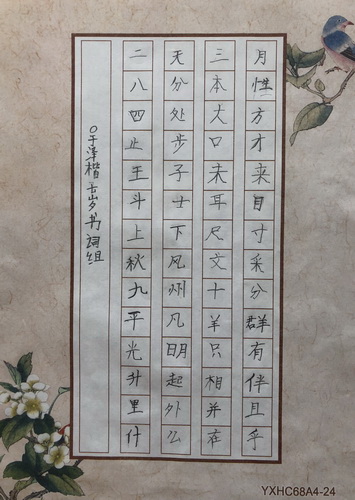 月性方才来目寸采分群有伴且乎
三本大口未耳尺文十羊只相并在
天分处步子士下风州凡明起外么
二八四止王斗上秋九平光升里什
于泽楷 五岁书 词组
YXHC68A4-24